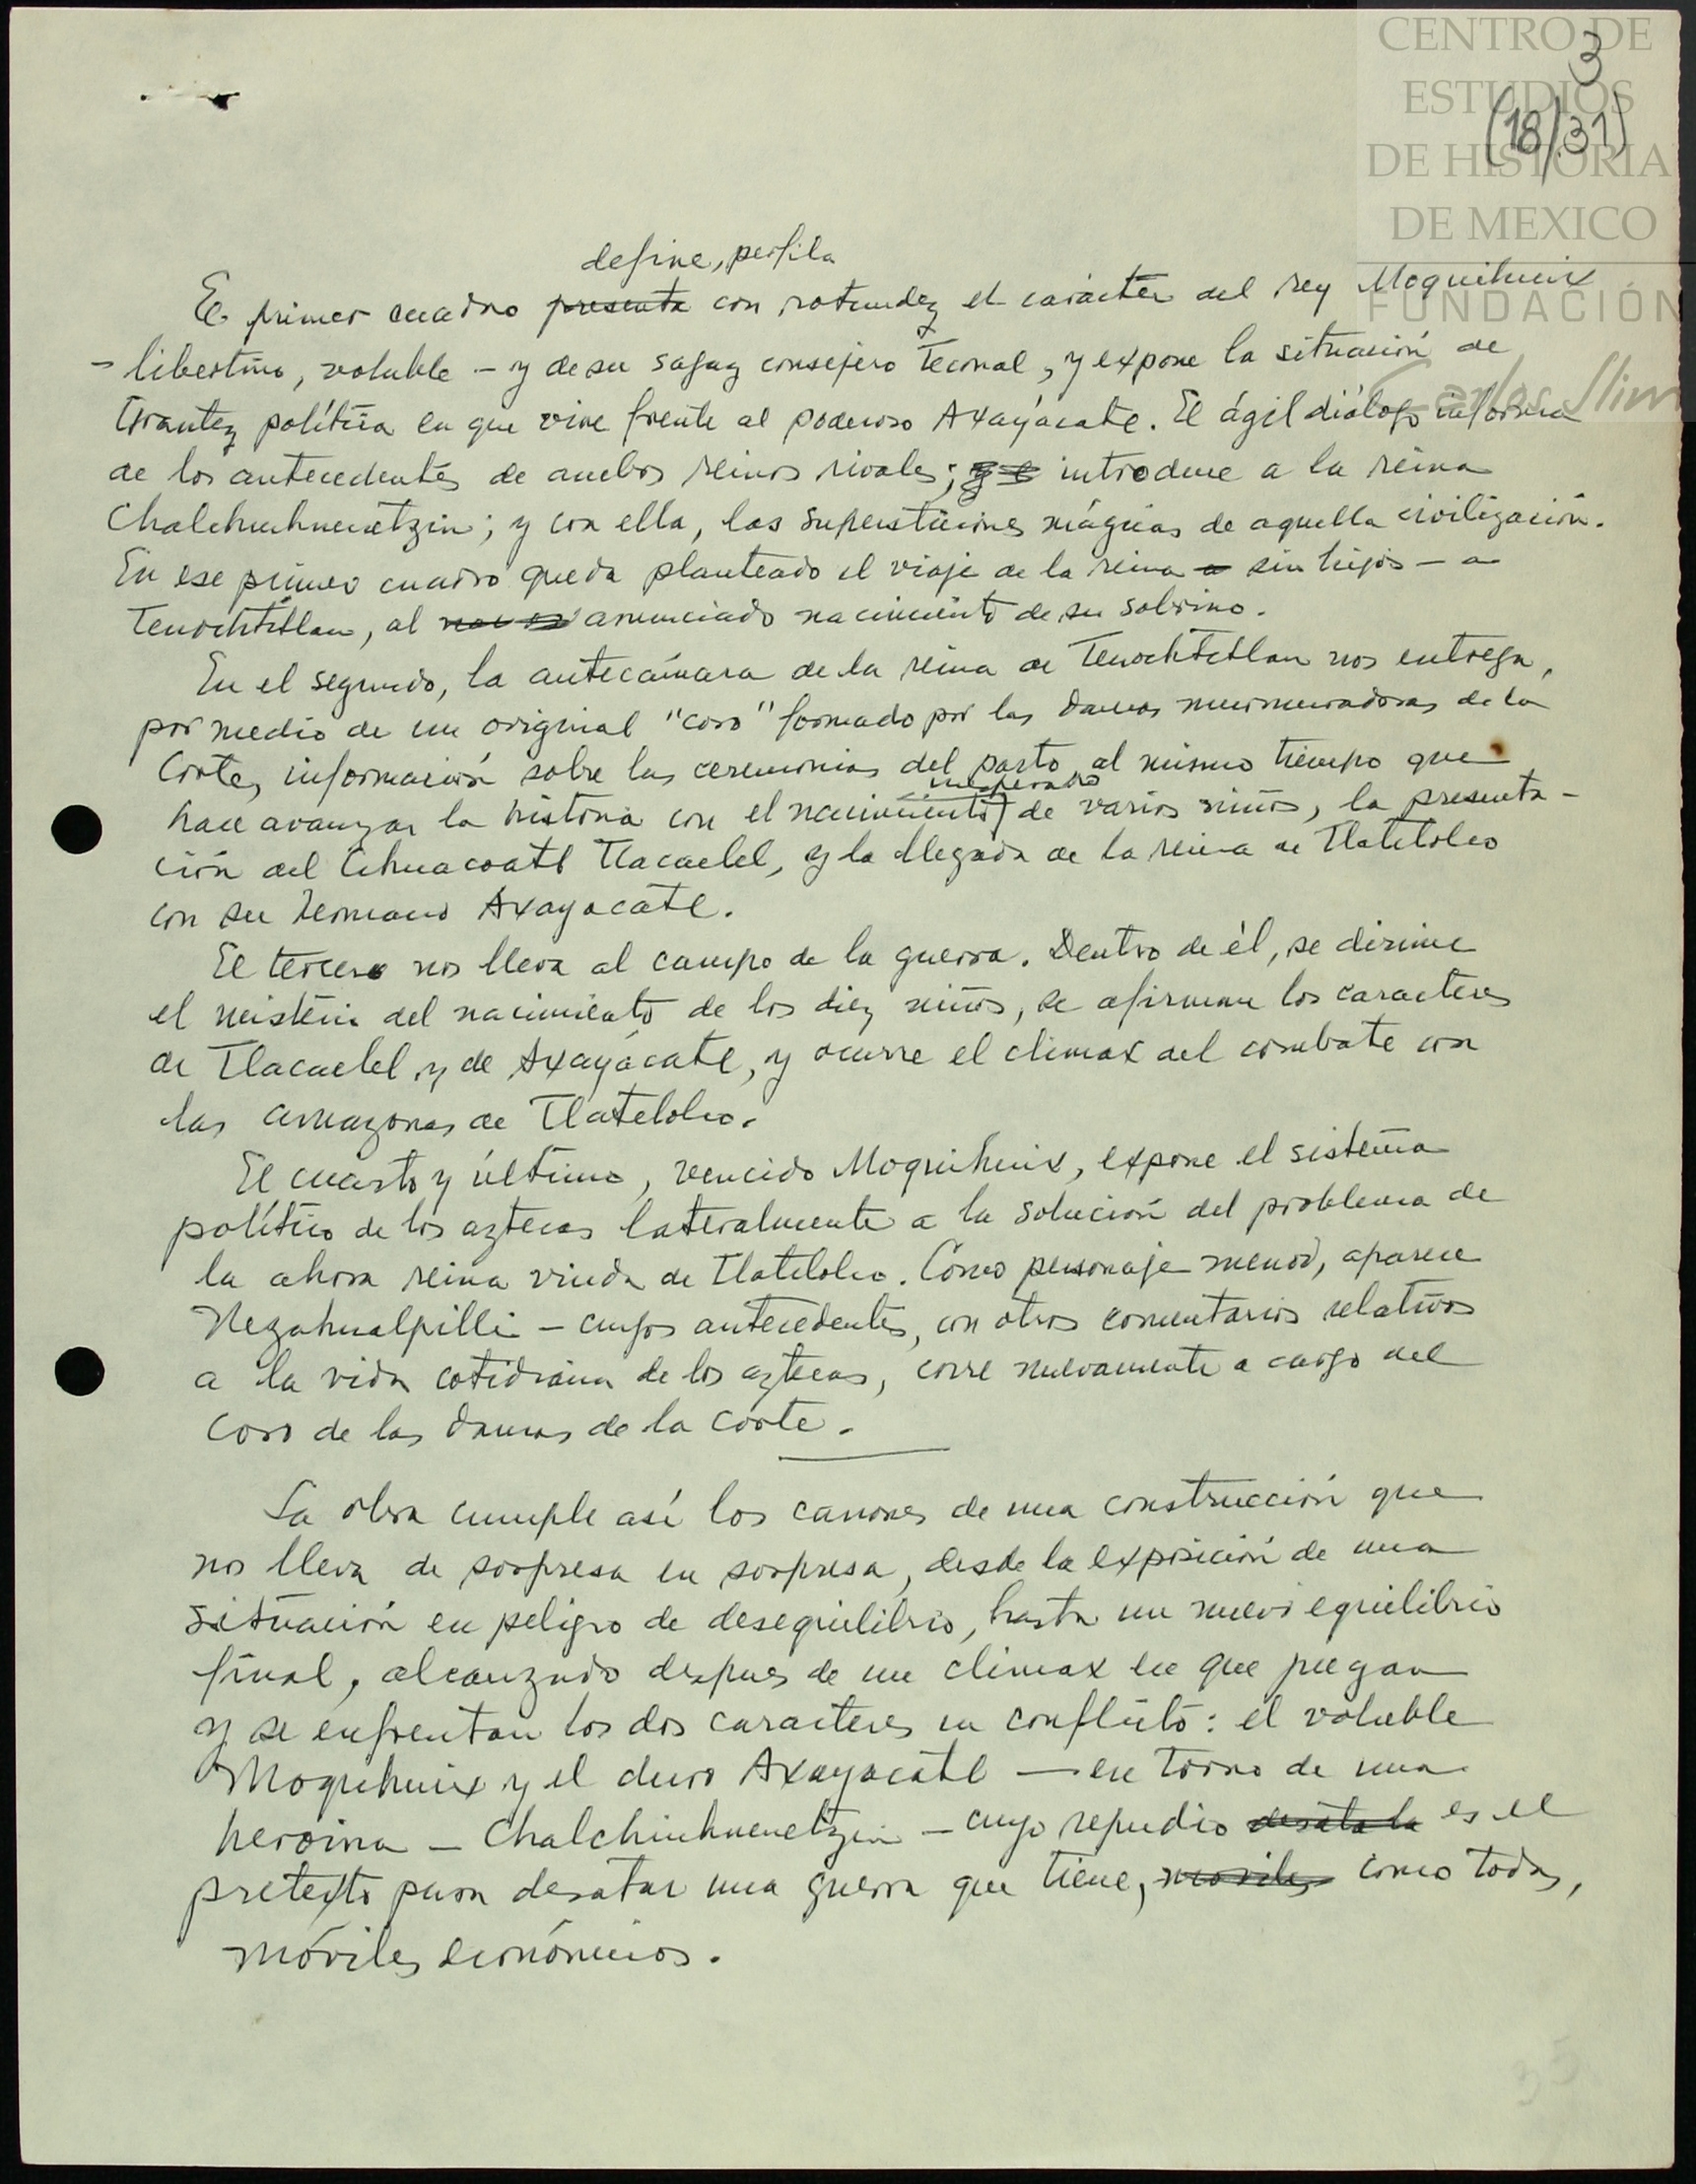 CENTRO DE
ESTUDIOS
DE HISTORIA
DE MEXICO
FUNDACIÓN
Carlos Slim
3
(18/31)
define, perfila
El primer cuadro presenta con rotundez el carácter del rey Moquihuix
- libertino, voluble - y de su sagaz consejero Teconal, y expone la situación de
tirantez política en que vive frente al poderoso Axayácatl. El ágil diálogo informa
de los antecedentes de ambos reinos rivales; introduce a la reina
Chalchiuhnenetzin; y con ella, las supersticiones mágicas de aquella civilización.
En ese primer cuadro queda planteado el viaje de la reina a sin hijos - a
Tenochtitlan, al anunciado nacimiento de su sobrino.
En el segundo, la antecámara de la reina de Tenochtitlan nos entrega,
por medio de un original "coro" formado por las damas murmuradoras de la
Corte, información sobre las ceremonias del parto, al mismo tiempo que
inesperado
hace avanzar la historia con el nacimiento de varios niños, la presenta-
ción del Cihuacoatl Tlacaelel, y la llegada de la reina de Tlatelolco
con su hermano Axayacatl.
El tercero nos lleva al campo de la guerra. Dentro de él, se dirime
el misterio del nacimiento de los diez niños, se afirman los caracteres
de Tlacaelel y de Axayácatl, y ocurre el climax del combate con
las amazonas de Tlatelolco.
El cuarto y último, vencido Moquihuix, expone el sistema
político de los aztecas lateralmente a la solución del problema de
la ahora reina viuda de Tlatelolco. Como personaje menor, aparece
Nezahualpilli - cuyos antecedentes, con otros comentarios relativos
a la vida cotidiana de los aztecas, corre nuevamente a cargo del
coro de las damas de la corte.
La obra cumple así los canones de una construcción que
nos lleva de sorpresa en sorpresa, desde la exposición de una
situación en peligro de desequilibrio, hasta un nuevo equilibrio
final, alcanzado despues de un climax en que juegan
y se enfrentan los dos caracteres en conflicto: el voluble
Moquihuix y el duro Axayacatl — en torno de una
heroina - Chalchiuhnenetzin - cuyo repudio desata la es el
pretexto para desatar una guerra que tiene, moviles como todas,
móviles económicos.
35